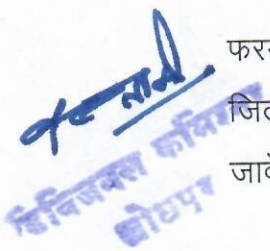 फरम
जिल
जावे
डिविजनल कमिश्नर
जोधपुर